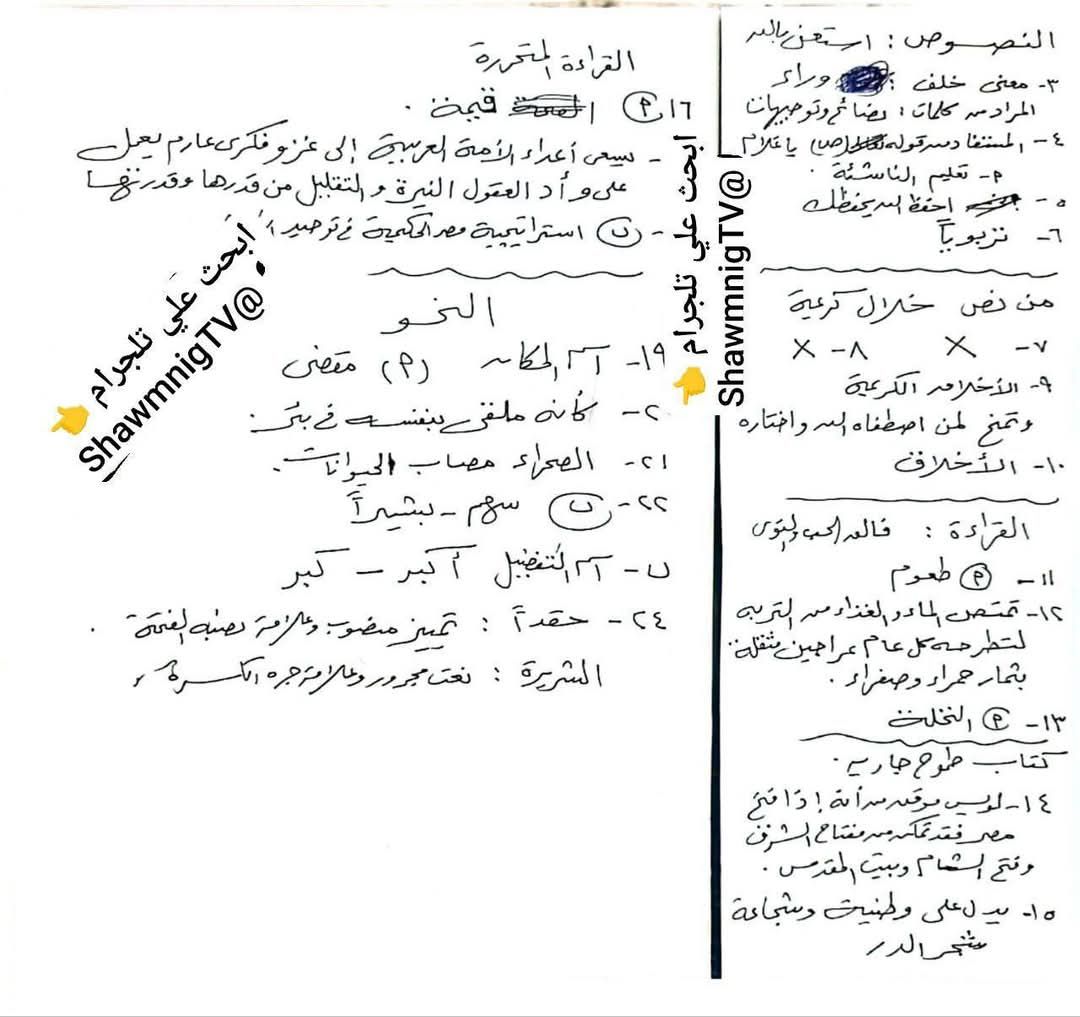 النصوص : استعن بالله
٣- معنى خلف : وراء
المراد من كلمات : نصائح وتوجيهات
٤- المستفاد من قوله (ص) يا غلام
م- تعليم الناشئة .
٥- احفظ الله يحفظك
٦- تربوياً
من نص خلال كريمة
٧- X ٨- X
٩- الأخلاق الكريمة
وتمنح لمن اصطفاه الله واختاره
١٠- الأخلاق
القراءة : فالق الحب والنوى
١١- (م) طعوم
١٢- تمتص الماء والغذاء من التربة
لتطرحه كل عام عراجين مثقلة
بثمار حمراء وصفراء .
١٣- (م) النخلة
كتاب طموح جارية .
١٤- لويس موقن من أنه إذا فتح
مصر فقد تمكن من مفتاح الشرق
وفتح الشام وبيت المقدس .
١٥- يدل على وطنية وشجاعة
شجر الدر
القراءة المتحررة
١٦ (م) قيمة .
- يسعى أعداء الأمة العربية إلى غزو فكرى عارم يعمل
على وأد العقول النيرة والتقليل من قدرها وقدرتها
- (ب) استراتيجية مصر الحكيمة في توحيد
النحو
١٩- اسم المكان (م) مقضى
٢٠- كأنه ملقى بنفسه في بئر .
٢١- الصحراء مصاب الحيوانات .
٢٢- (ب) سهم - بشيراً
ب- اسم التفضيل أكبر - كبر
٢٤- حقداً : تمييز منصوب وعلامة نصبه الفتحة .
الشريرة : نعت مجرور وعلامة جره الكسرة
ابحث علي تلجرام 👈
@ShawmnigTV
ابحث علي تلجرام 👈
@ShawmnigTV